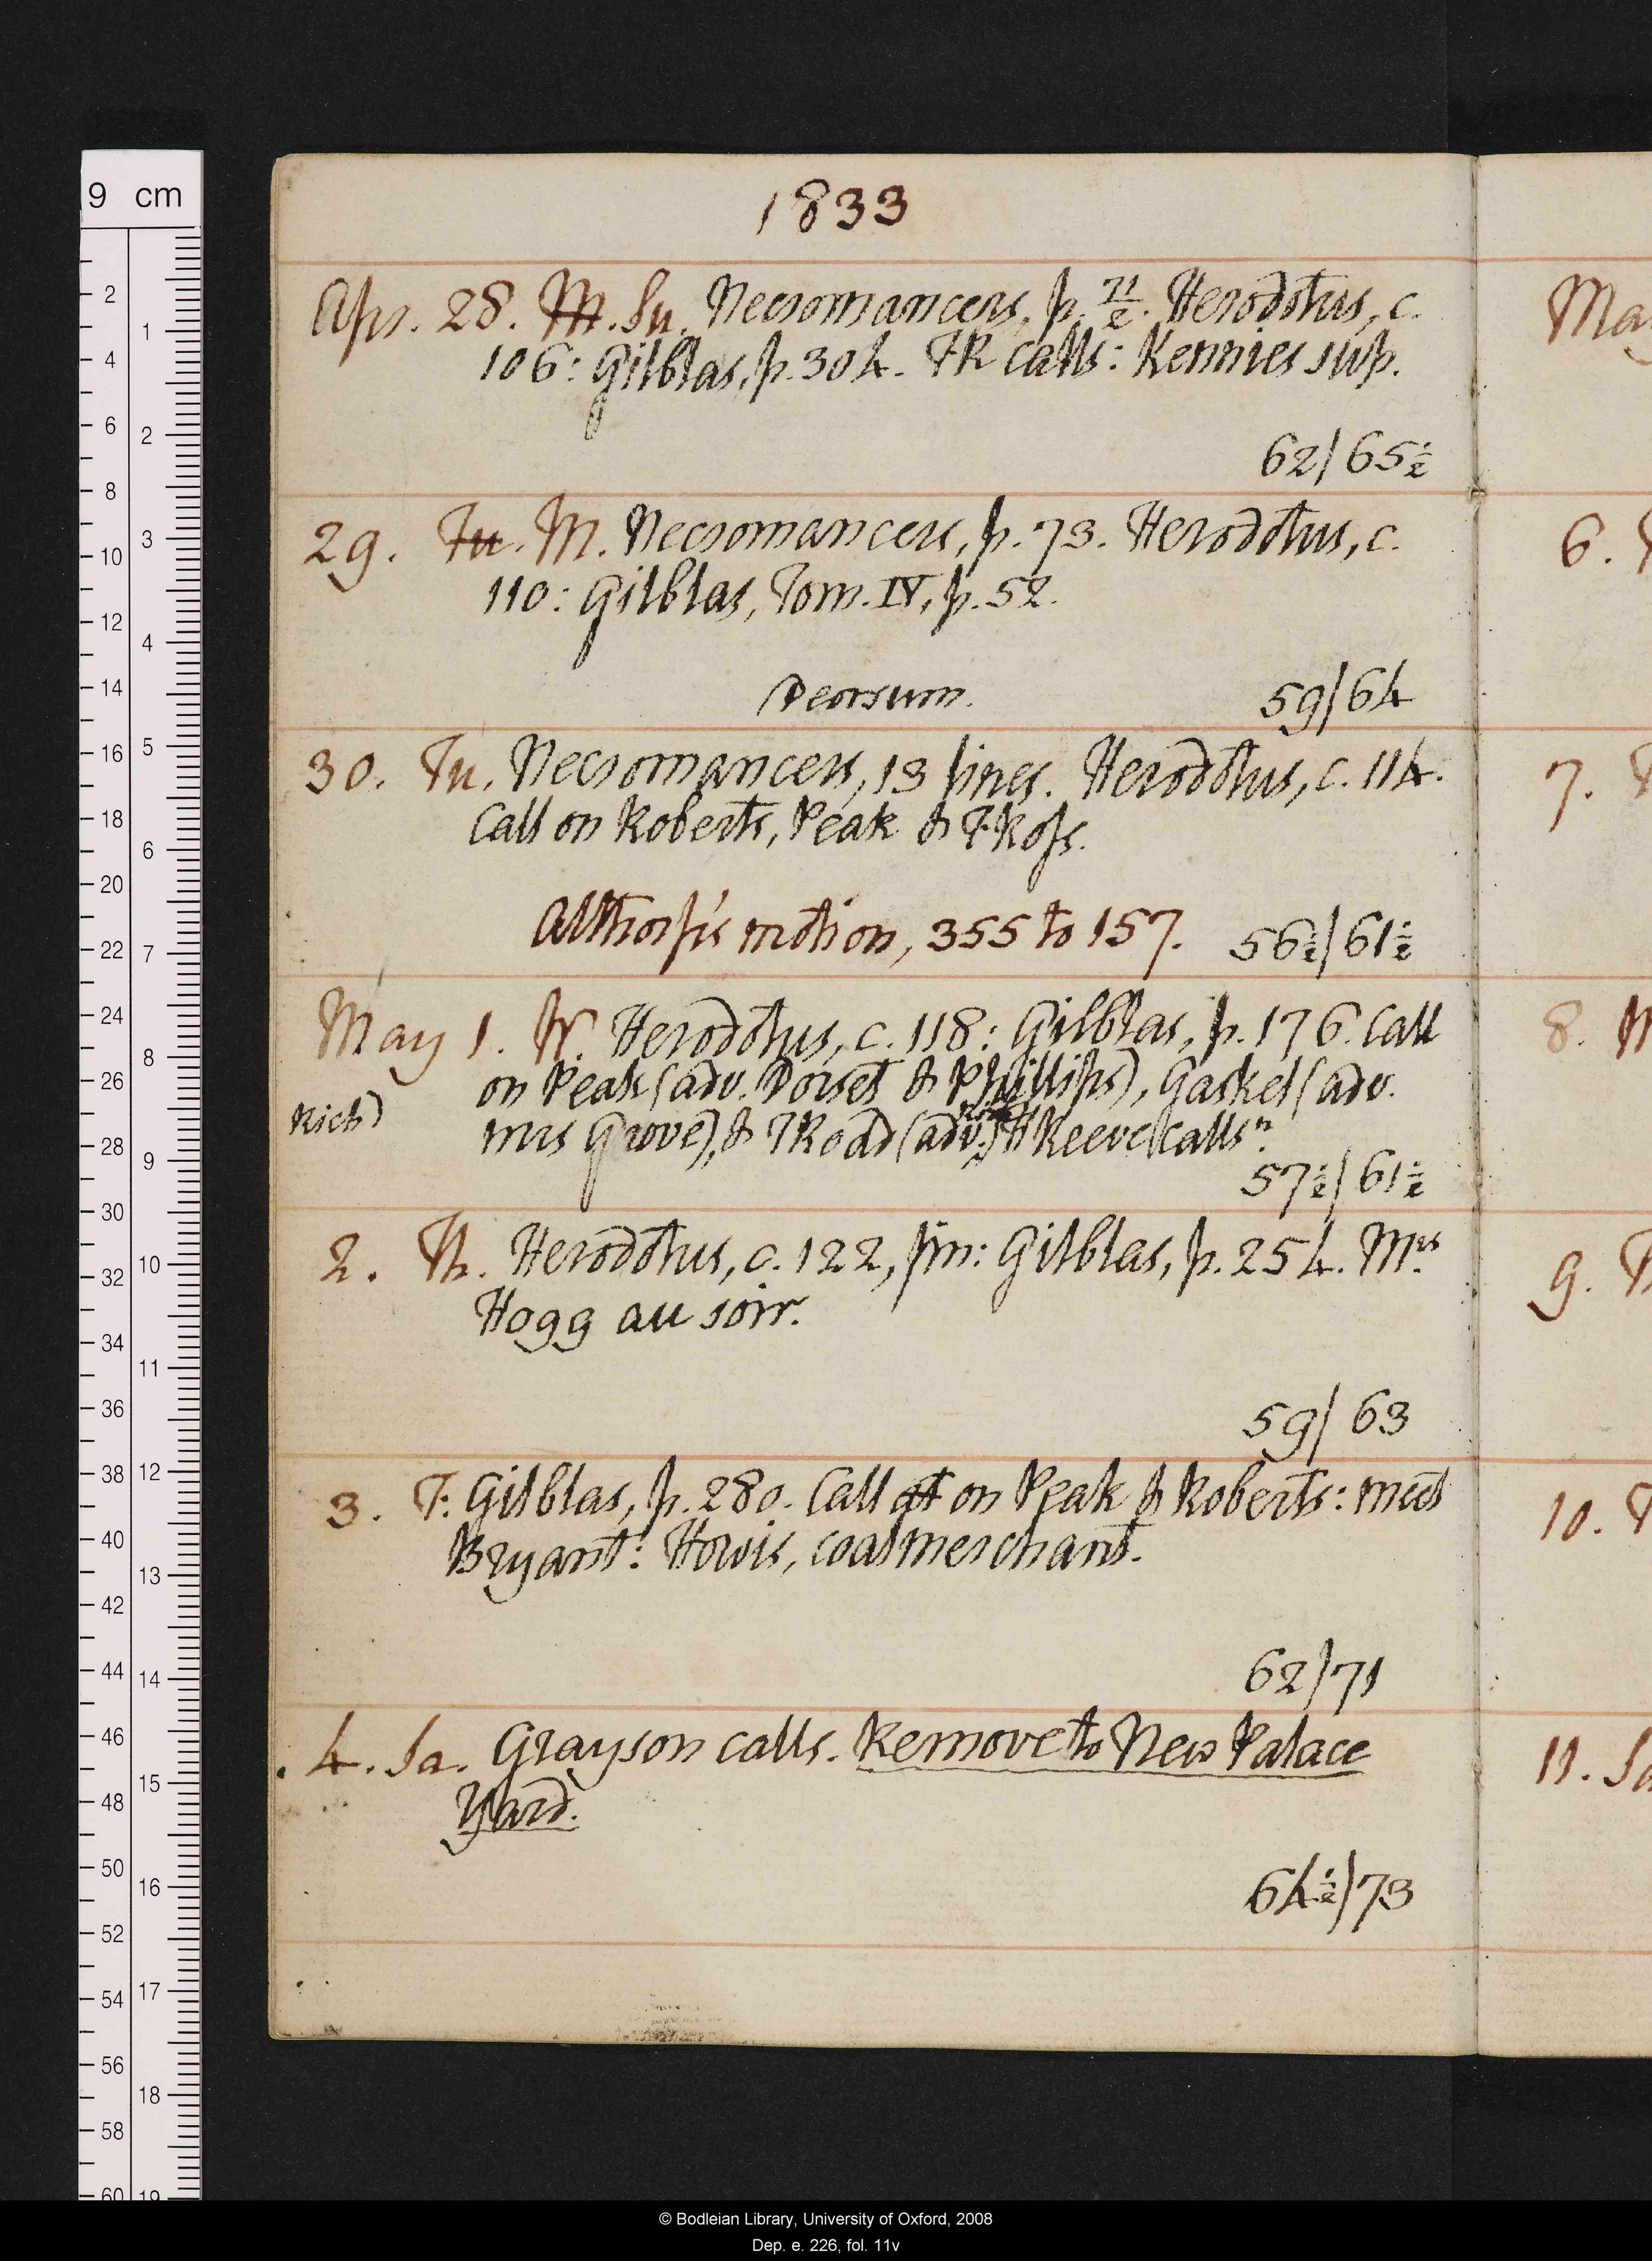 1833
Apr. 28. M. Su. Necromancers, p. 71/2. Herodotus, c.
106: Gilblas, p. 304. FK calls: Kennies sup.
62/65½
29. Tu. M. Necromancers, p. 73. Herodotus, c.
110: Gilblas, Tom. IV, p. 52.
Deorsum.
59/64
30. Tu. Necromancers, 13 lines. Herodotus, c. 114.
Call on Roberts, Peak & F Koss.
Althorp's motion, 355 to 157.
56½/61½
May 1. W. Herodotus, c. 118: Gilblas, p. 176. Call
on Peak (adv. Dorset & Phillips), Gaskel (adv.
Rich)
mrs Grove), & TRoad (adv. H Reeve calls n.
57½/61½
2. Th. Herodotus, c. 122, fin: Gilblas, p. 254. Mrs
Hogg au soir.
59/63
3. F: Gilblas, p. 280. Call at on Peak & Roberts: meet
Bryant: Howis, coalmerchant.
62/71
4. Sa. Grayson calls. Remove to New Palace
Yard.
64½/73
May
6.
7.
8.
9.
10.
11. Sa
9 cm
© Bodleian Library, University of Oxford, 2008
Dep. e. 226, fol. 11v